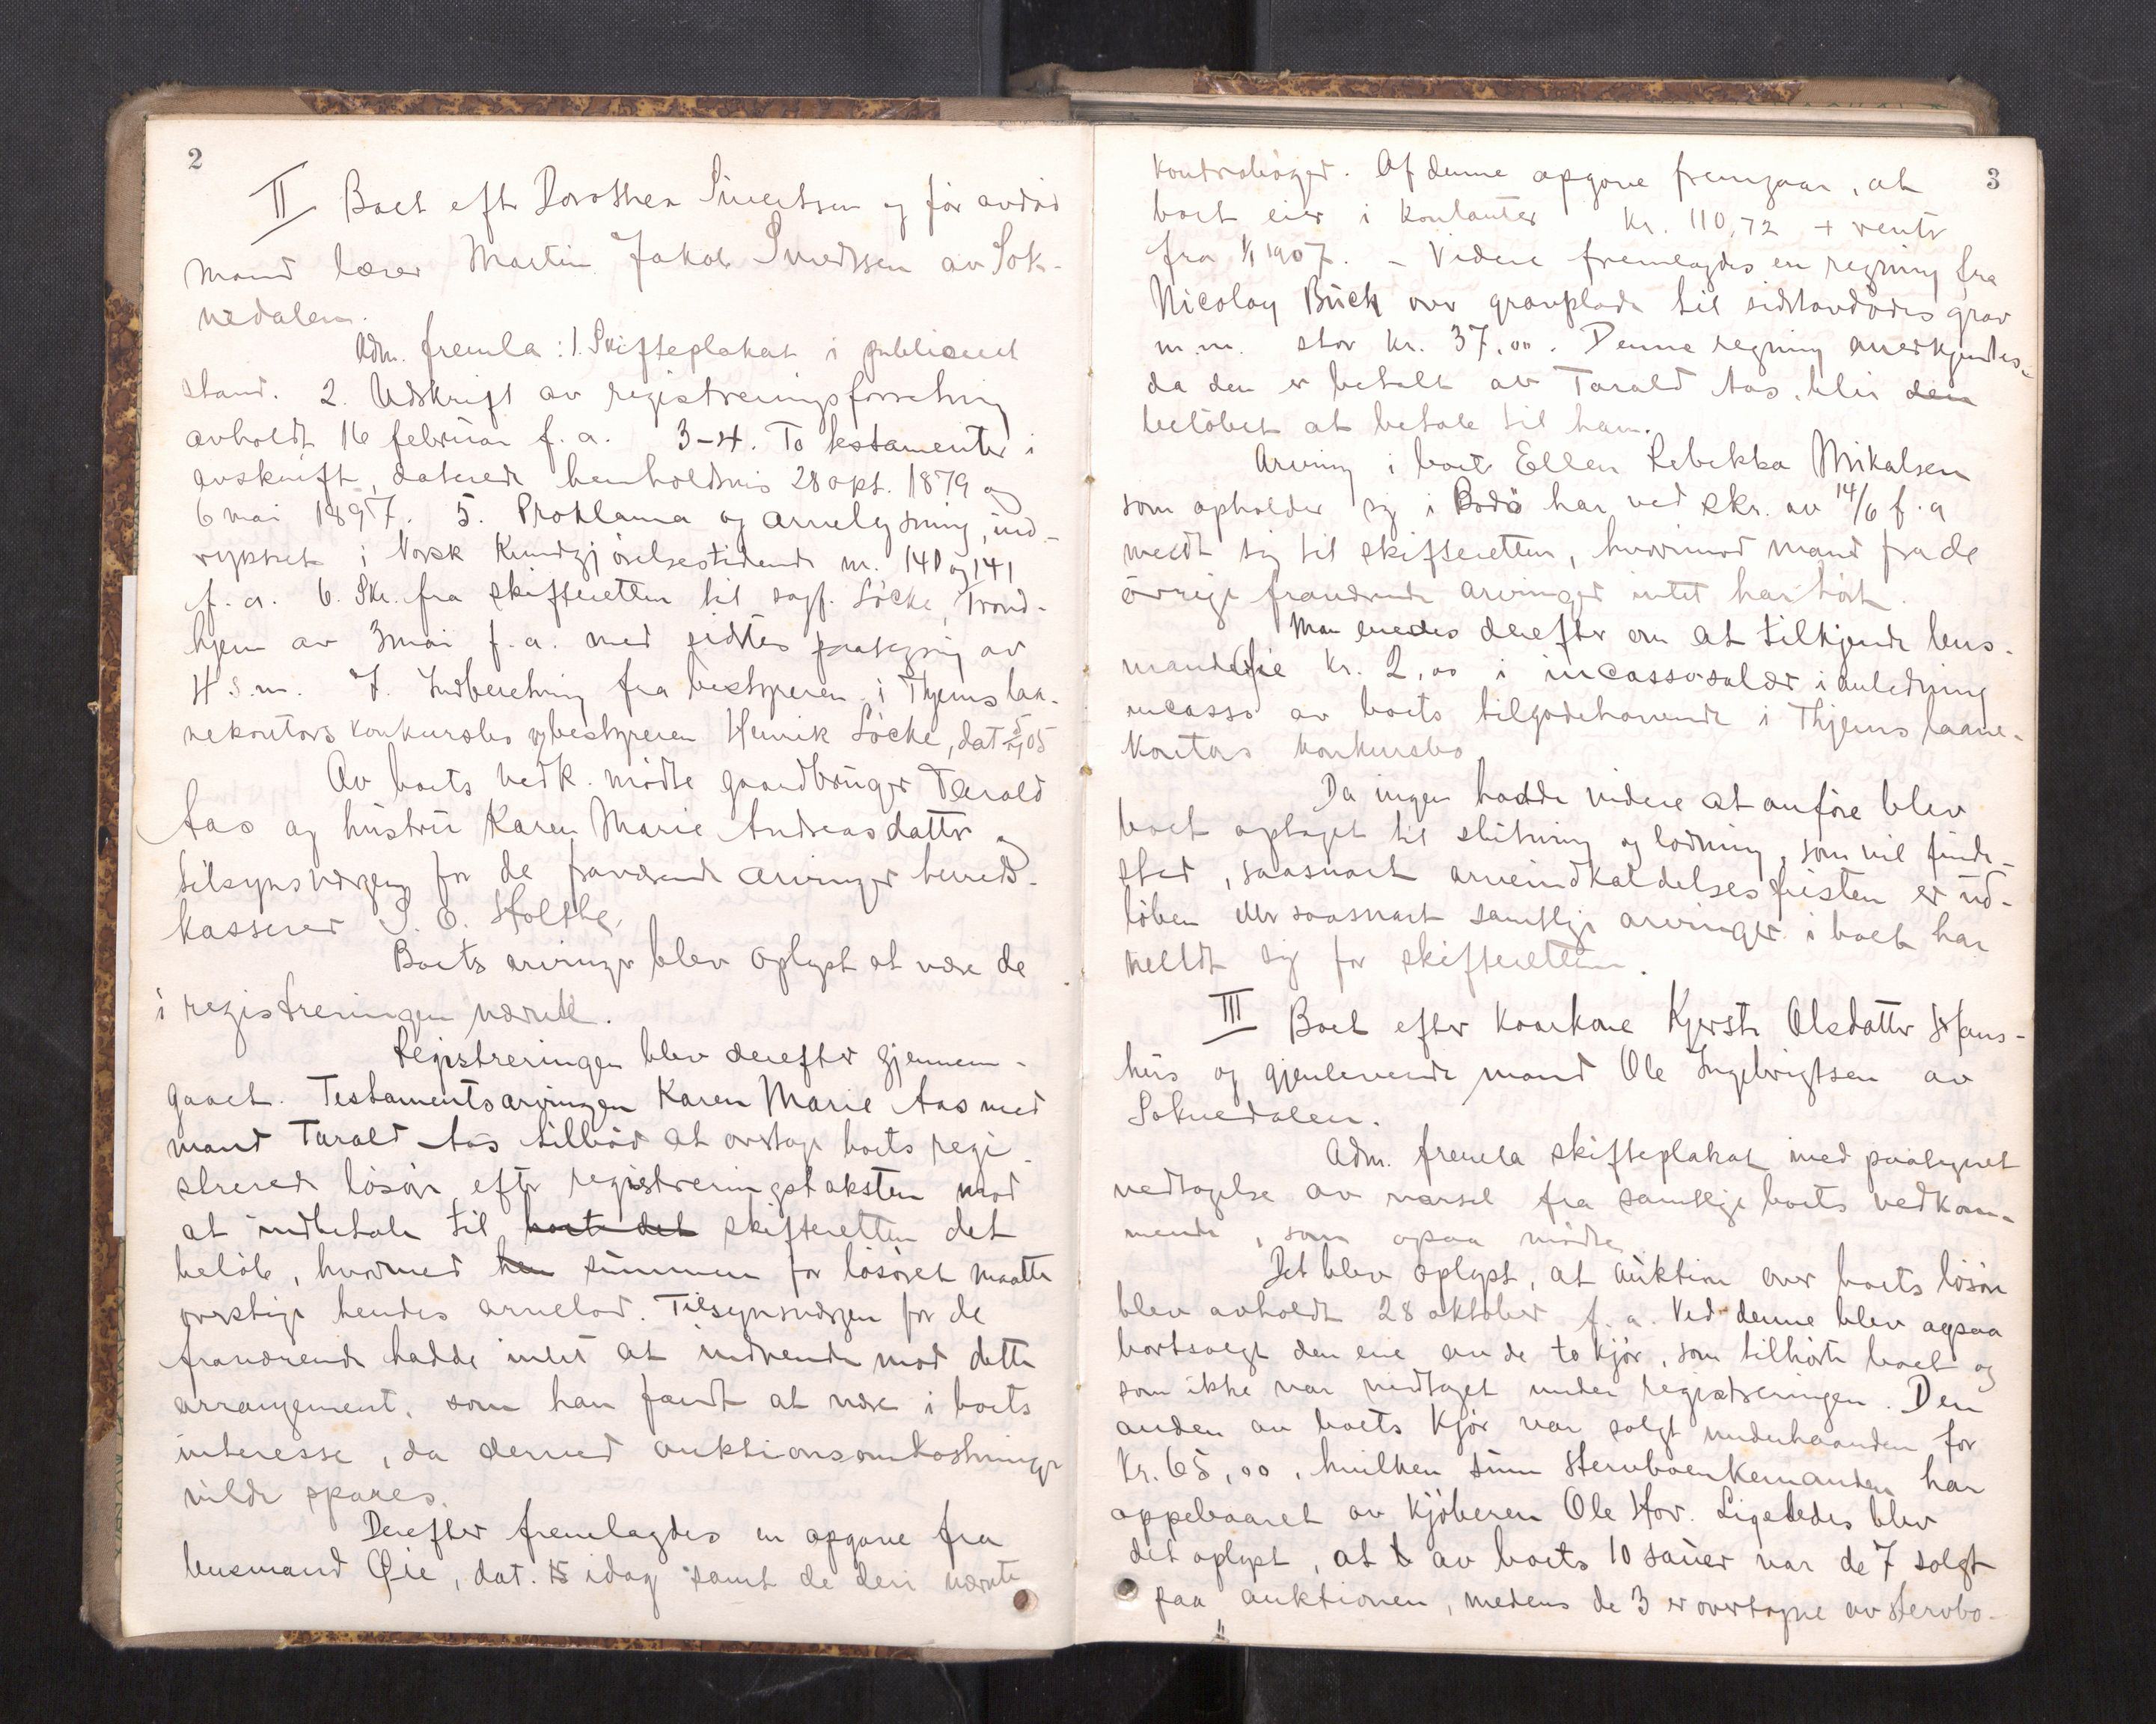 2
II Boet eft Dorothea Sivertsen og før avdød
mand lærer Martin Jakob Sivertsen av Sok-
nedalen.
Adm. fremla: 1. Skifteplakat i publiceret
stand. 2. Udskrift av registreringsforretning
avholdt 16 februar f. a. 3-4. To testamenter i
avskrift, daterede henholdsvis 28 sept. 1879 og
6 mai 1897. 5. Proklama og arvelysning, ind-
rykket i Norsk Kundgjørelsestidende nr. 140 og 141
f. a. 6. Skr. fra skifteretten til sagf. Löcke, Trond-
hjem av 3 mai f. a. med sidstes paategning av
4 s. m. 7. Indberetning fra bestyreren i Thjems laa-
nekontors konkursbo v/bestyreren Henrik Löcke, dat 05
Av boets vedk. mødte gaardbruger Tarald
Aas og hustru Karen Marie Andreasdatter og
tilsynsværgen for de fraværende arvinger herreds-
kasserer Holthe.
Boets arvinger blev oplyst at være de
i registreringen nævnte.
Registreringen blev derefter gjennem-
gaaet. Testamentsarvingen Karen Marie Aas med
mand Tarald Aas tilbød at overtage boets regi-
strerede løsøre efter registreringstaksten mod
at indbetale til boet det skifteretten det
beløb, hvormed hen summen for løsøret maatte
overstige hendes arvelod. Tilsynsværgen for de
fraværende hadde intet at indvende mod dette
arrangement, som han fandt at være i boets
interesse, da derved auktionsomkostninger
vilde spares.
Derefter fremlagdes en opgave fra
lensmand Øie, dat. idag samt de deri nævnte
3
kontrabøger. Af denne opgave fremgaar, at
boet eier i kontanter kr. 110,72 + renter
fra 1/1 1907. - Videre fremlagdes en regning fra
Nicolay Buch over gravplade til sidstavdødes grav
m.m. stor kr. 37,00. Denne regning anerkjendtes,
da den er betalt av Tarald Aas, blir den
beløbet at betale til ham.
Arving i boet Ellen Rebekka Mikalsen
som opholder sig i Bodö har ved skr. av 14/6 f. a
meldt sig til skifteretten, hvorimod mand fra de
øvrige fraværende arvinger intet har hørt.
Man enedes derefter om at tilkjende lens-
mand Øie kr. 2,00 i incassosalær i anledning
incasso av boets tilgodehavende i Thjems laane-
kontors konkursbo
Da ingen hadde videre at anføre blev
boet optaget til slutning og lodning, som vil finde
sted, saasnart arveindkaldelsesfristen er ud-
løben eller saasnart samtlige arvinger i boet har
meldt sig for skifteretten.
III Boet efter kaarkone Kjersti Olsdatter Hans-
hus og gjenlevende mand Ole Ingebrigtsen av
Soknedalen.
Adm. fremla skifteplakat med paategnet
vedtagelse av varsel fra samtlige boets vedkom-
mende, som ogsaa mødte.
Det blev oplyst, at auktion over boets løsøre
blev avholdt 28 oktober f. a. Ved denne blev ogsaa
bortsolgt den ene av de to kjør, som tilhørte boet og
som ikke var medtaget under registreringen. Den
anden av boets kjør var solgt underhaanden for
kr. 65,00, hvilken sum stervboenkemanden har
oppebaaret av kjøberen Ole Hov. Ligeledes blev
det oplyst, at av boets 10 sauer var de 7 solgt
paa auktionen, medens de 3 er overtagne av stervbo-